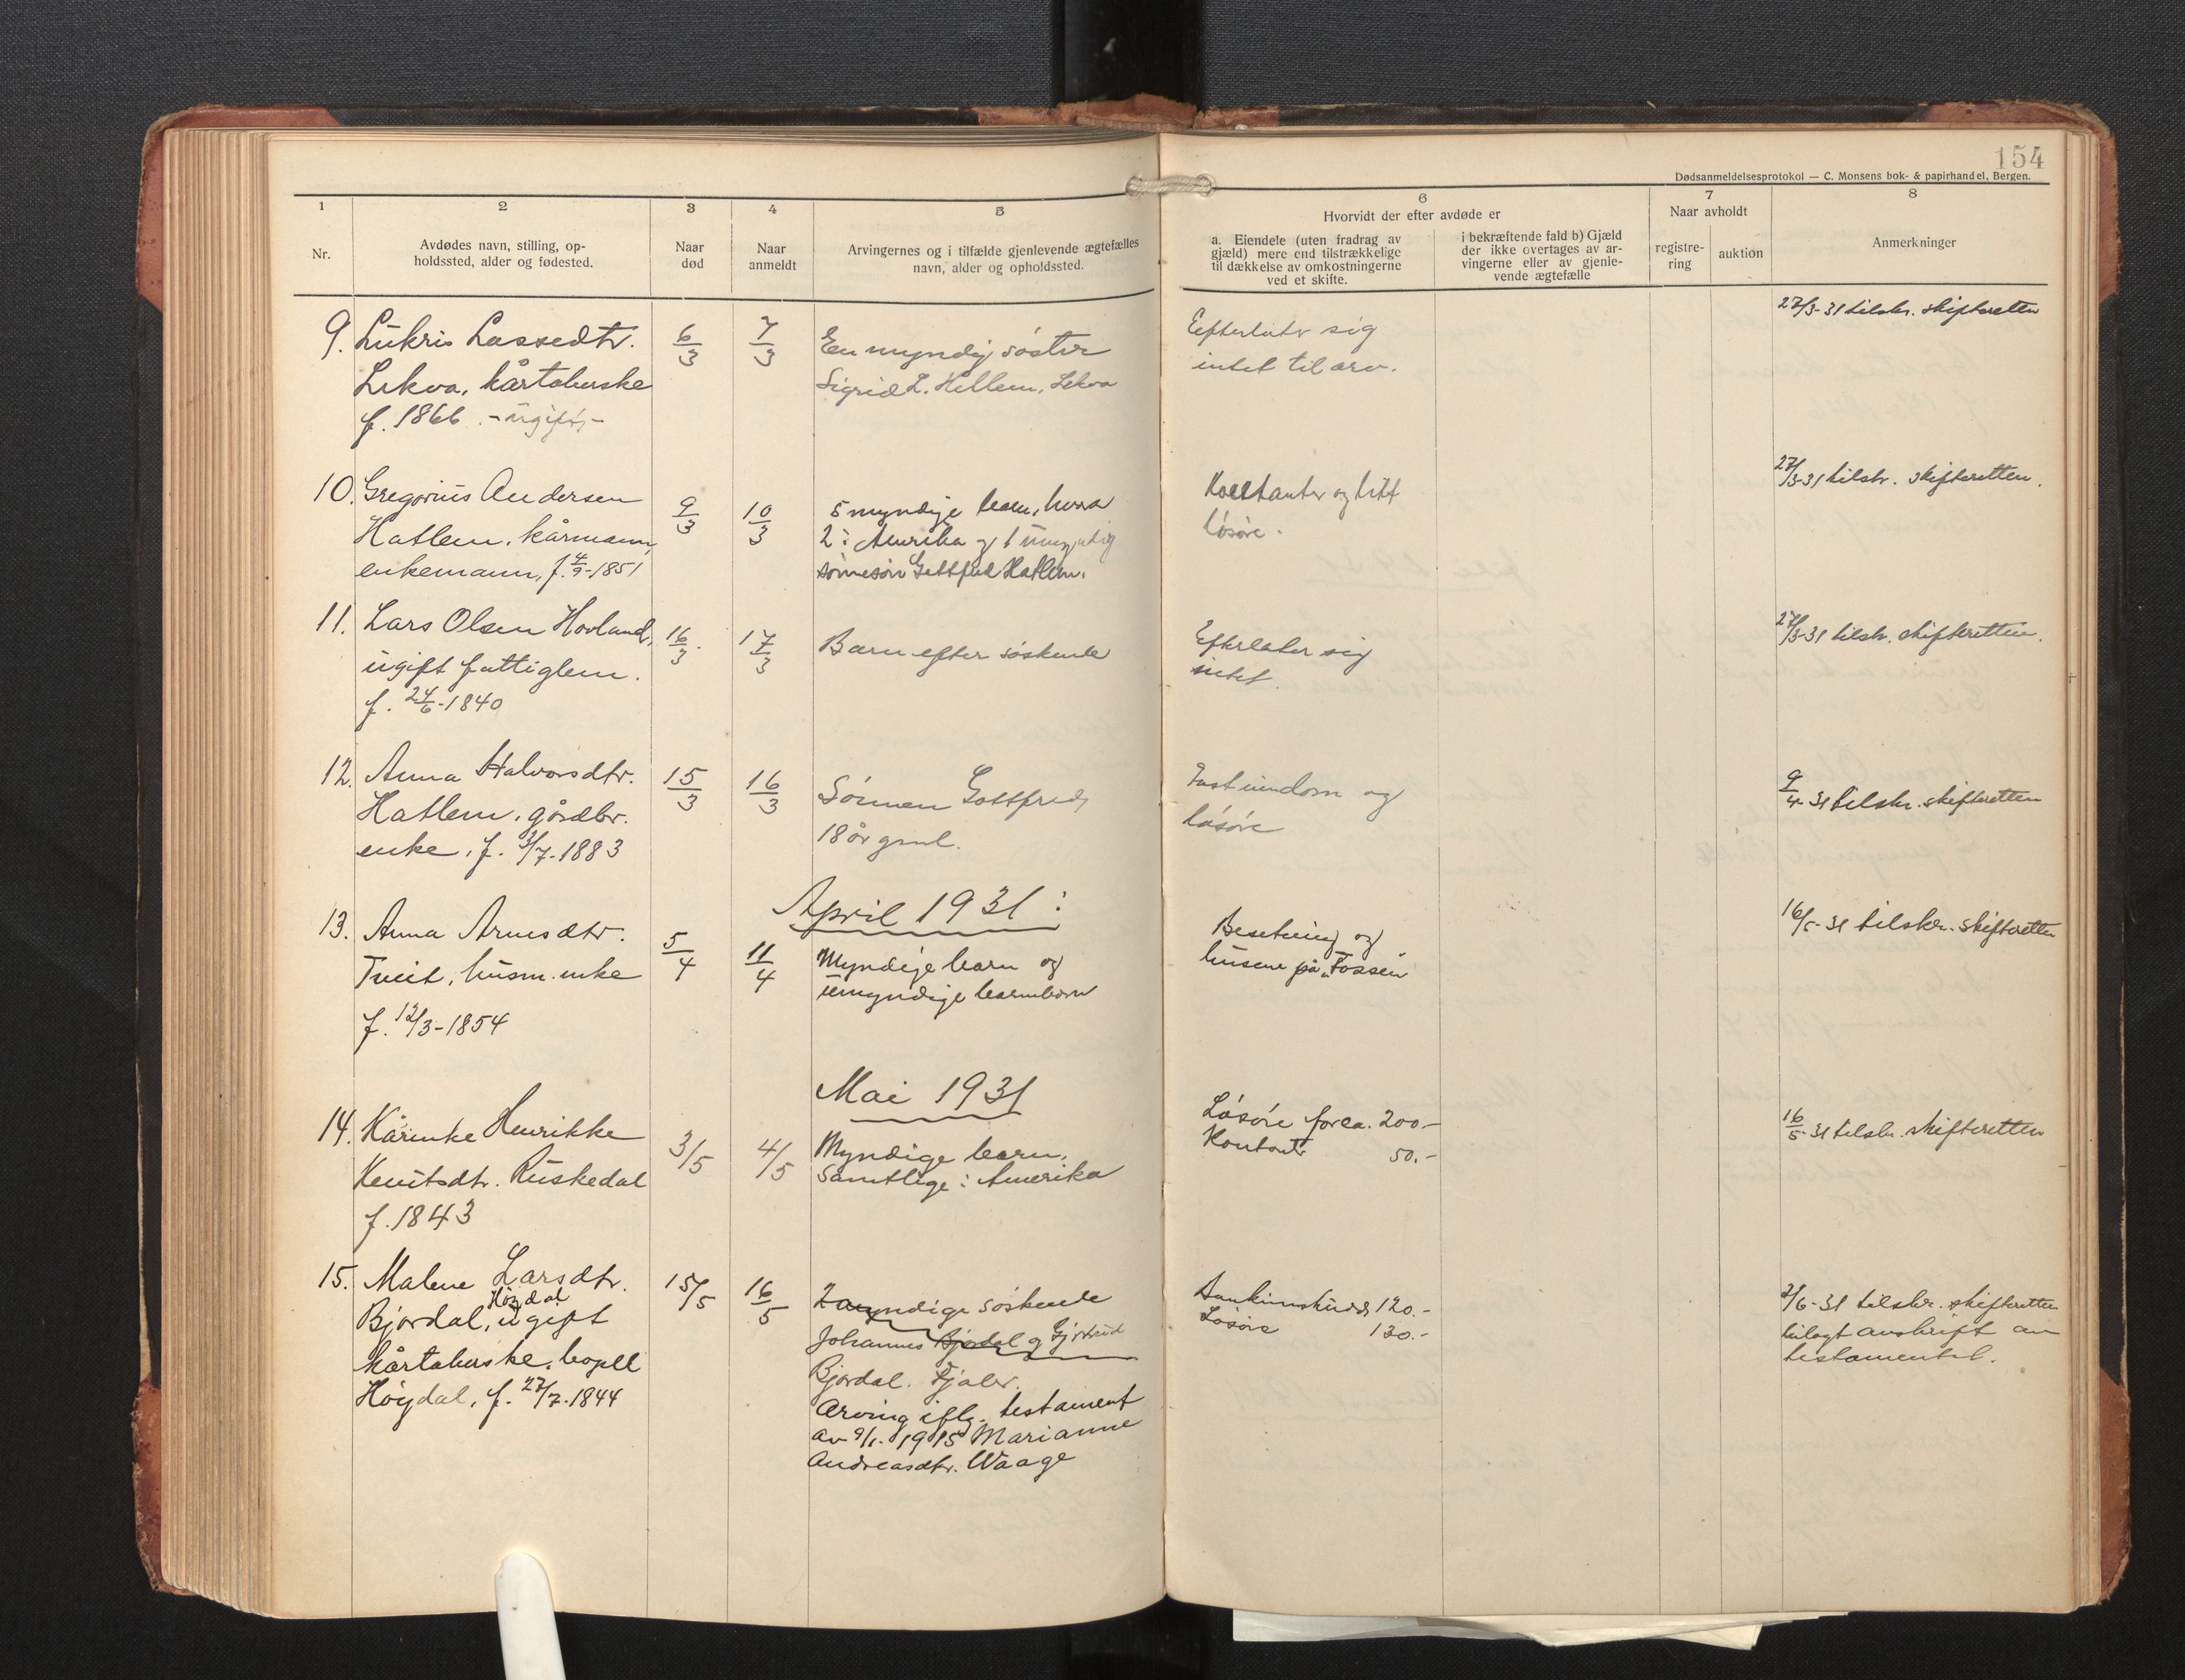 154
Dødsanmeldelsesprotokol — C. Monsens bok- & papirhandel, Bergen.
1 2 3 4 5 6 7 8
Nr.
Avdødes navn, stilling, op-
holdssted, alder og fødested.
Naar
død
Naar
anmeldt
Arvingernes og i tilfælde gjenlevende ægtefælles
navn, alder og opholdssted.
Hvorvidt der efter avdøde er
a. Eiendele (uten fradrag av
gjæld) mere end tilstrækkelige
til dækkelse av omkostningerne
ved et skifte.
i bekræftende fald b) Gjæld
der ikke overtages av ar-
vingerne eller av gjenle-
vende ægtefælle
Naar avholdt
registre-
ring
auktion
Anmerkninger
9. Lukris Lassedtr.
Lekva, kårtakerske
f. 1866 - ugift,-
6/3
7/3
En myndig søster
Sigrid L. Hellem, Lekva
Efterlater sig
intet til arv.
27/3-31 tilskr. skifteretten
10. Gregorius Andersen
Hatlem, kårmann,
enkemann, f. 4/9-1851
9/3
10/3
5 myndige barn, hvorav
2 i Amerika og 1 umyndig
sønnesøn Gottfred Hatlem.
Kontanter og litt
løsøre.
27/3-31 tilskr. skifteretten.
11. Lars Olsen Hovland,
ugift fattiglem.
f. 24/6-1840
16/3.
17/3
Barn efter søskende
Efterlater sig
intet.
27/3-31 tilskr. skifteretten.
12. Anna Halvorsdtr.
Hatlem, gårdbr.
enke, f. 3/7-1883
15/3
16/3
Sønnen Gottfred,
18 år gml.
Fast eiendom og
løsøre
9/4-31 tilskr. skifteretten
April 1931:
13. Anna Arnesdtr.
Tveit, husm. enke
f. 12/3-1854
5/4
11/4
Myndige barn og
umyndige barnebarn
Besetning og
husene på "Fossen"
16/5-31 tilskr. skifteretten
Mai 1931
14. Kårinke Henrikke
Knutsdtr. Ruskedal
f. 1843
3/5
4/5
Myndige barn,
samtlige i Amerika
Løsøre for ca. 200.-
Kontant 50.-
16/5-31 tilskr. skifteretten
15. Malene Larsdtr.
Høydal
Bjordal, ugift
kårtakerske, bopell
Høydal, f. 27/7-1844
15/5
16/5
2 myndige søskende
Johannes Bjordal og Gjertrud
Bjordal. Fjaler.
Arving iflg. testament
av 9/1. 1915 Marianne
Andreasdtr. Waage
Bankinnskudd 120.-
Løsøre 130.-
2/6-31 tilskr. skifteretten
bilagt avskrift av
testamentet.